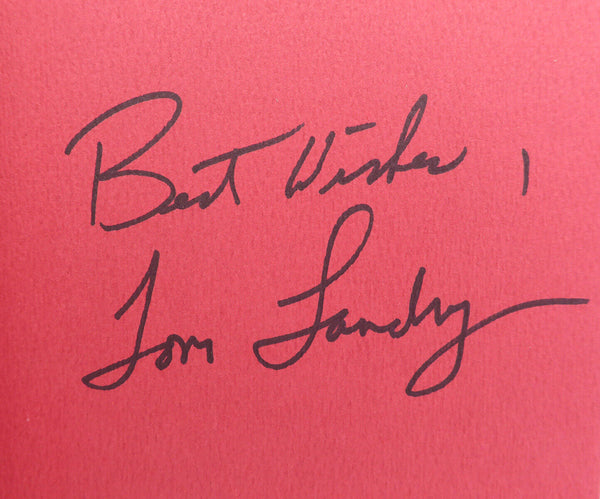 Best Wishes,
Tom Landry